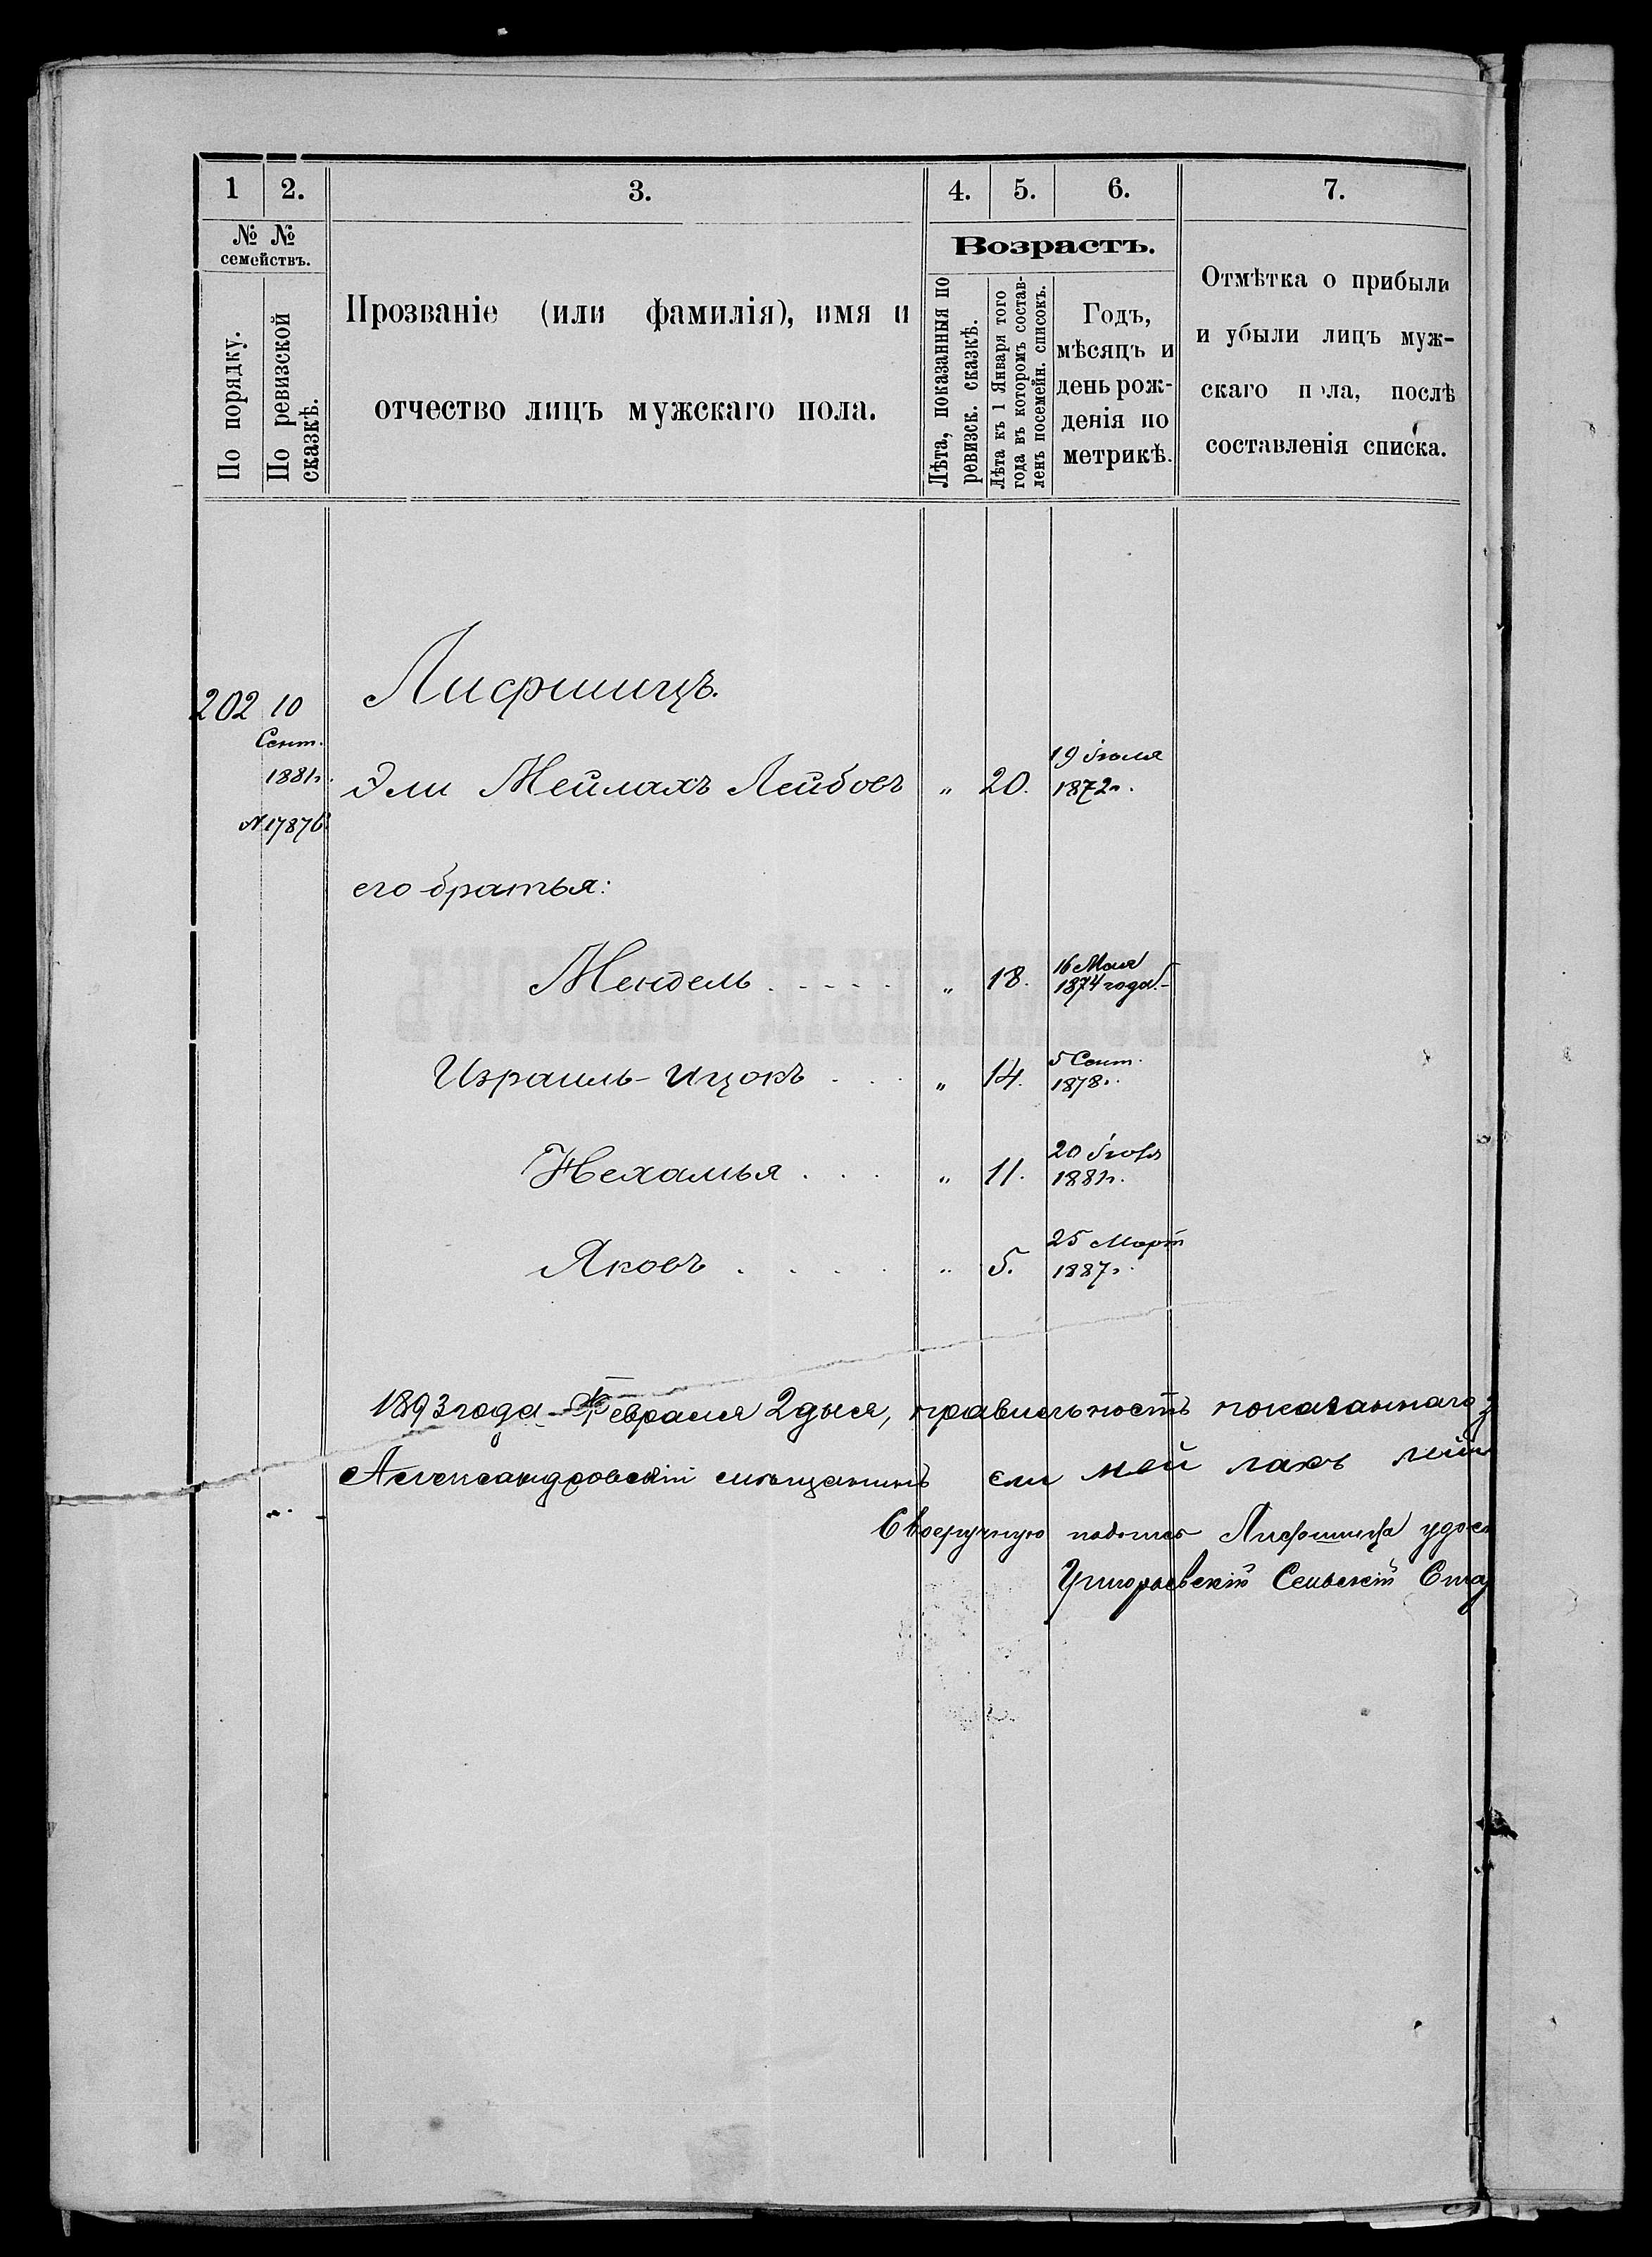 1 2. 3. 4. 5. 6. 7.
№ №
семействъ.
По порядку.
По ревизской
сказкѣ.
Прозваніе (или фамилія), имя и
отчество лицъ мужскаго пола.
Возрастъ.
Лѣта, показанныя по
ревизск. сказкѣ.
Лѣта къ 1 Января того
года въ которомъ состав-
ленъ посемейн. списокъ.
Годъ,
мѣсяцъ и
день рож-
денія по
метрикѣ.
Отмѣтка о прибыли
и убыли лицъ муж-
скаго пола, послѣ
составленія списка.
202 10
Сент.
1881г.
№ 17876
Лифшицъ.
Эли Мейлахъ Лейбовъ „ 20. 19 Іюля
1872г.
его братья:
Мендель . . . . . „ 18. 16 Мая
1874 года
Израиль-Ицокъ . . . „ 14. 5 Сент.
1878г.
Нехамья . . . „ 11. 20
1881г.
Яковъ . . . . „ 5. 25 Март
1887г.
1893 года Февраля 2 дня, правильность показаннаго
Александровскій мѣщанинъ ели мей лахъ лей
Своеручную подпись Лифшица удос
Сельскій Ста